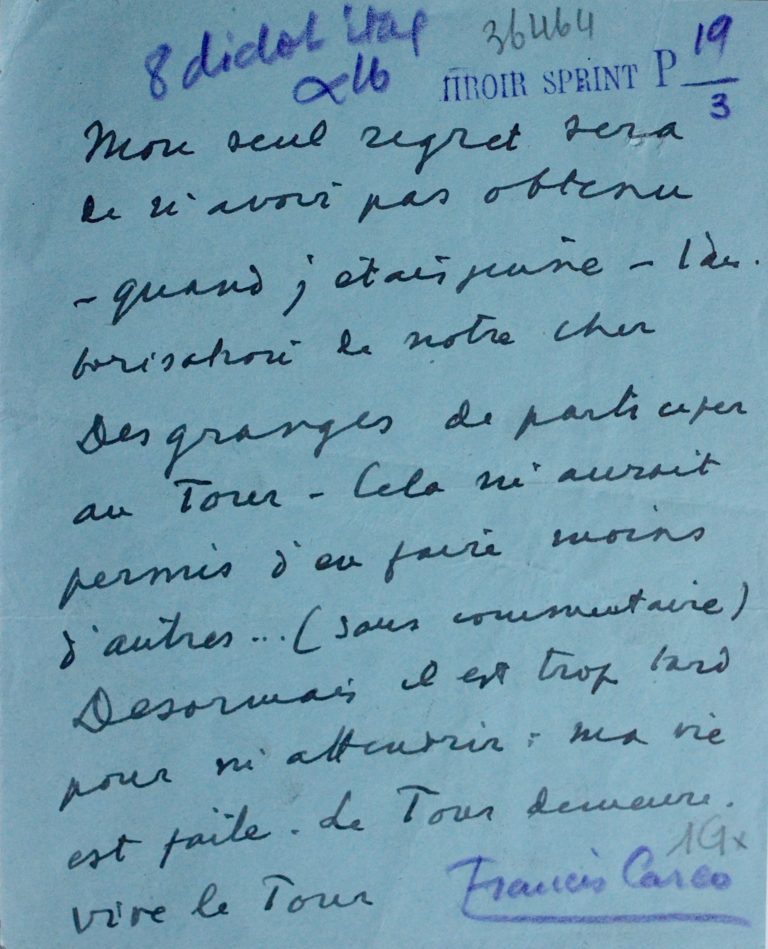 36464
8 didot ital
x 16
MIROIR SPRINT P 19
3
Mon seul regret sera
de n'avoir pas obtenu
- quand j'étais jeune - l'au-
torisation de notre cher
Desgranges de participer
au Tour - Cela m'aurait
permis d'en faire moins
d'autres... (sans commentaire)
Desormais il est trop tard
pour m'attendrir : ma vie
est faite. Le Tour demeure.
Vive le Tour
Francis Carco